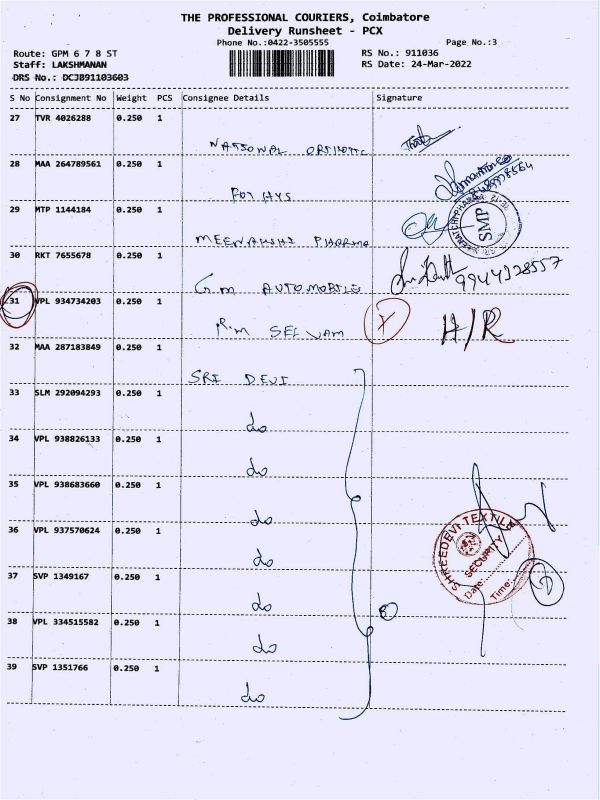 THE PROFESSIONAL COURIERS, Coimbatore
Delivery Runsheet - PCX
Phone No.:0422-3505555
Page No.:3
Route: GPM 6 7 8 ST
RS No.: 911036
Staff: LAKSHMANAN
RS Date: 24-Mar-2022
DRS No.: DCJB91103603
S No Consignment No Weight PCS Consignee Details Signature
27 TVR 4026288 0.250 1
NATIONAL
28 MAA 264789561 0.250 1
29 MTP 1144184 0.250 1
MEENAKSHI PHARMA
SMP
30 RKT 7655678 0.250 1
G.M AUTOMOBILE
9944928557
31 VPL 934734203 0.250 1
R.M SELVAM
H/R
32 MAA 287183849 0.250 1
SRI DEVI
33 SLM 292094293 0.250 1
do
34 VPL 938826133 0.250 1
do
35 VPL 938683660 0.250 1
do
36 VPL 937570624 0.250 1
do
SHREEDEVI TEXTILE
SECURITY
Date:
Time:
37 SVP 1349167 0.250 1
do
8
38 VPL 334515582 0.250 1
do
39 SVP 1351766 0.250 1
do